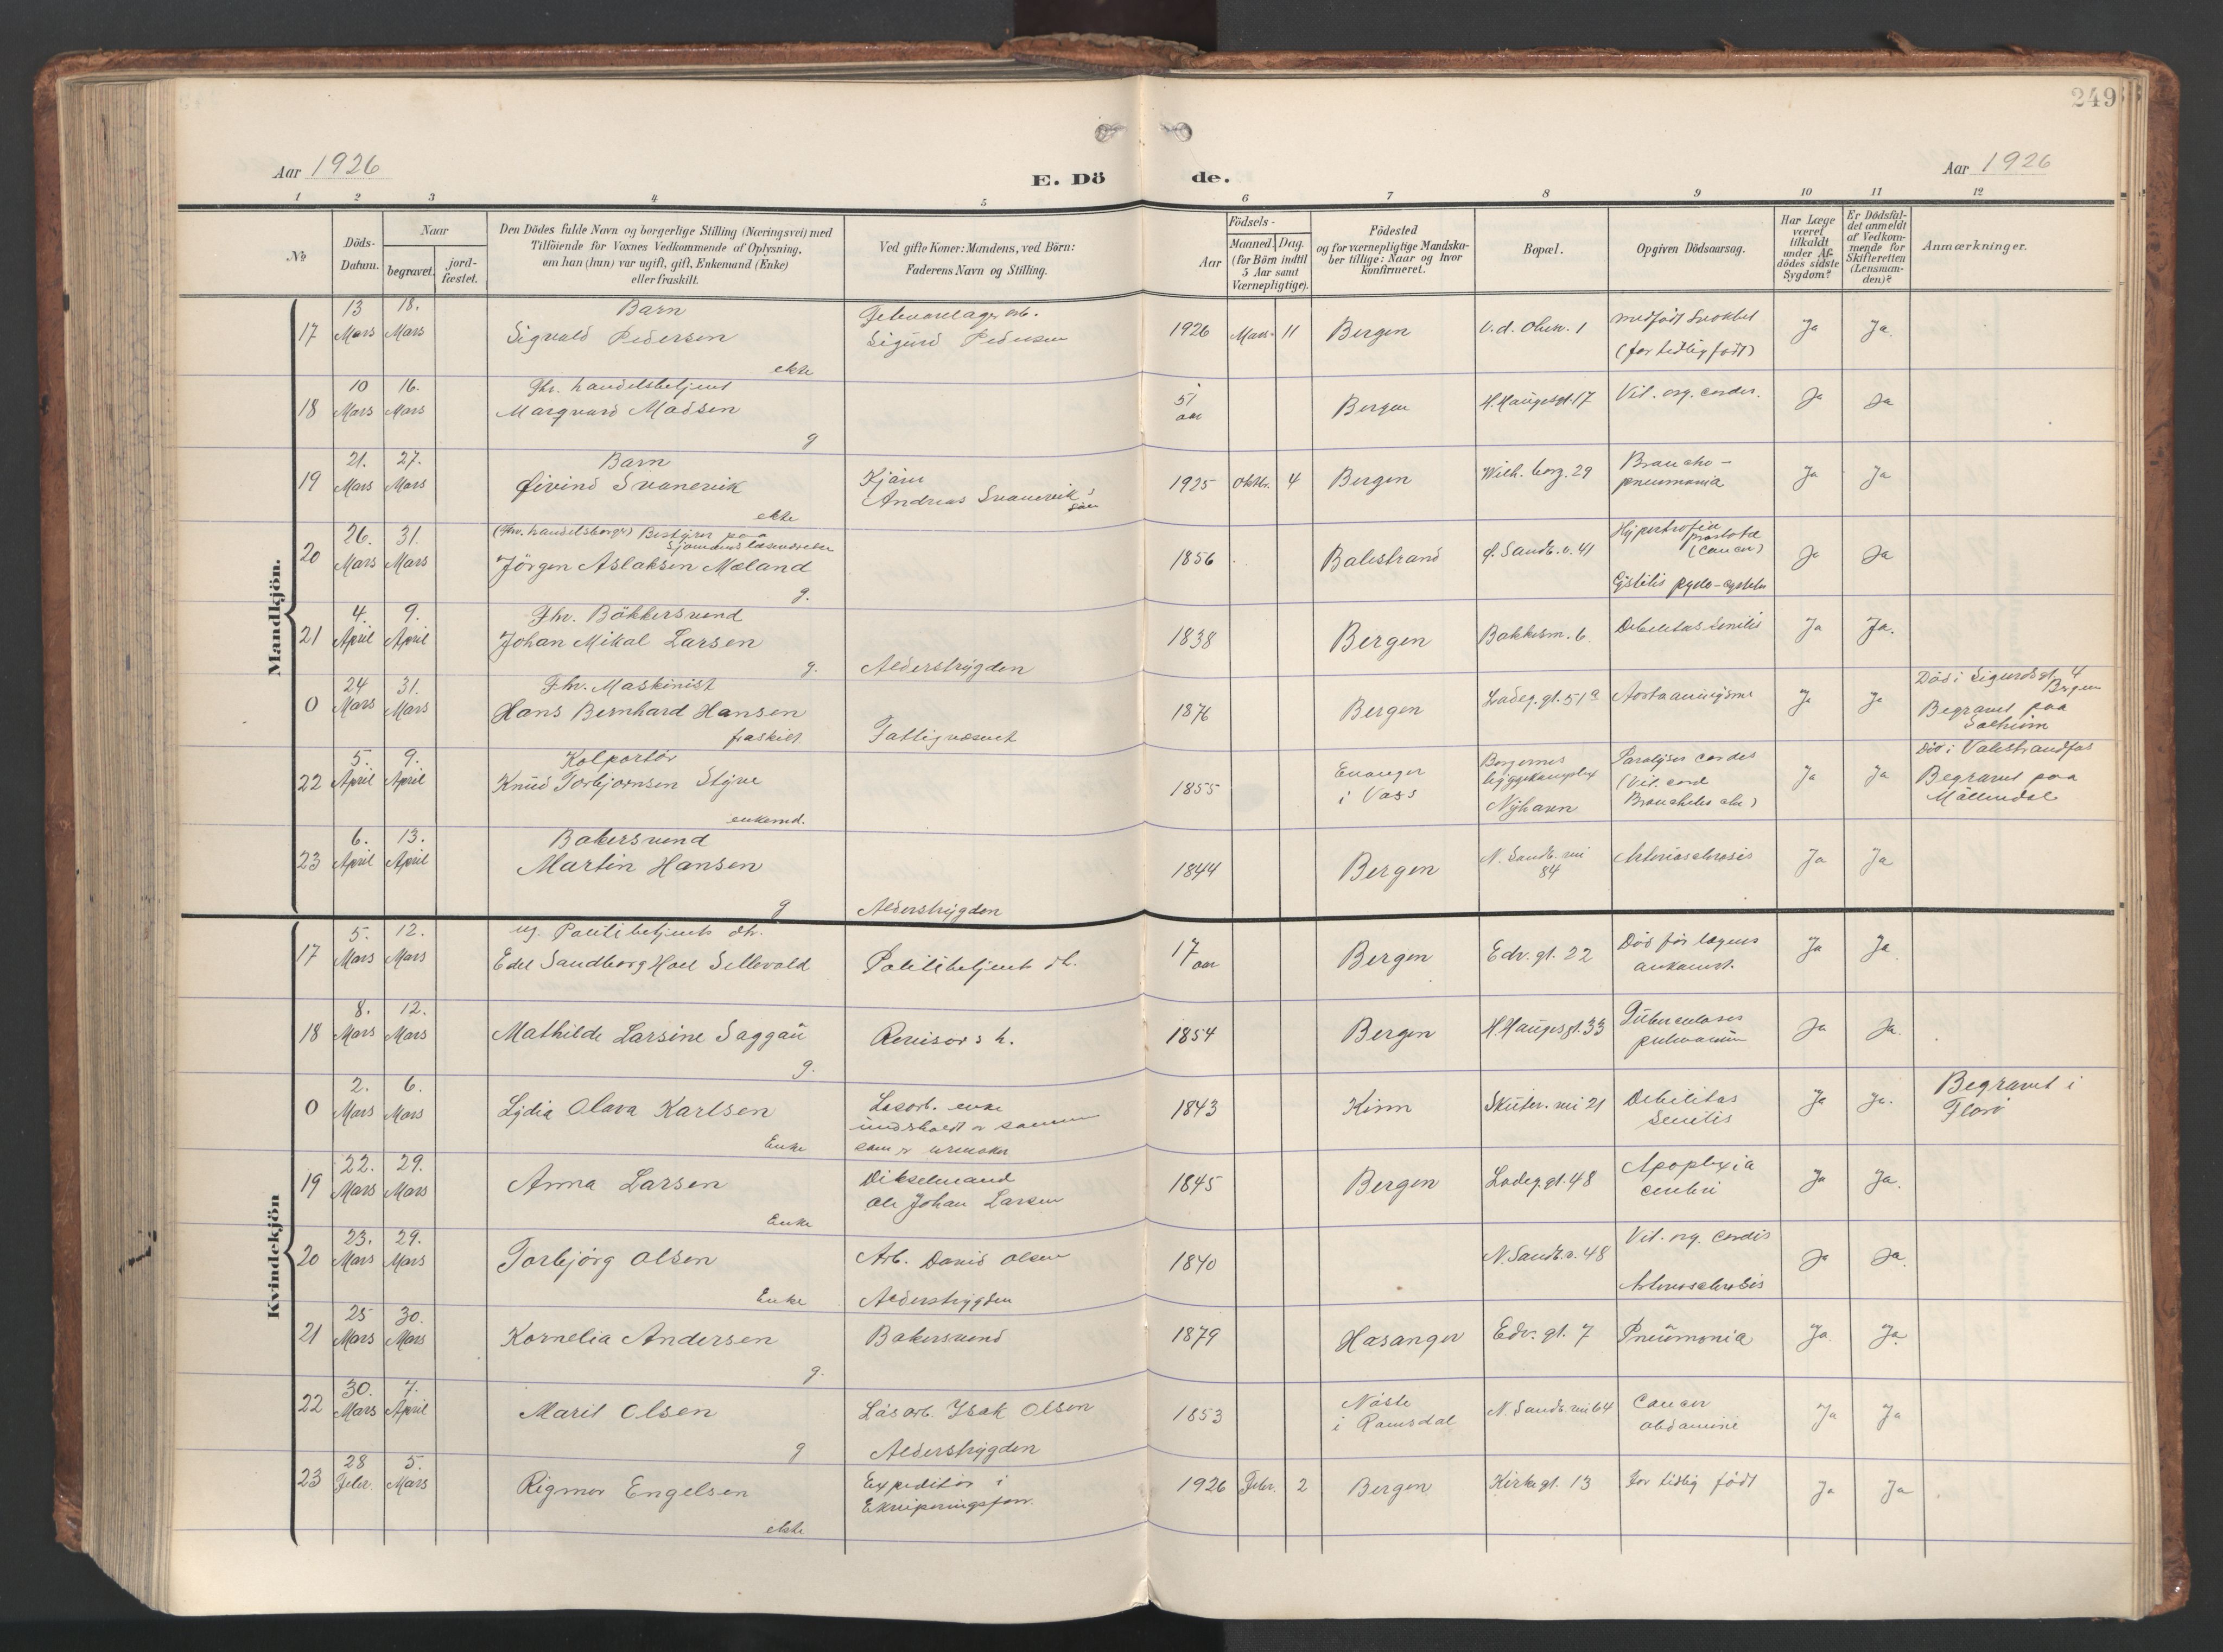 249
Aar 1926
E. Dö de.
Aar 1926
1 2 3 4 5 6 7 8 9 10 11 12
No
Döds-Datum.
Naar
begravet.
jordfæstet.
Den Dödes fulde Navn og borgerlige Stilling (Næringsvei) med
Tilföiende for Voxnes Vedkommende af Oplysning,
om han (hun) var ugift, gift, Enkemand (Enke)
eller fraskilt.
Ved gifte Koner: Mandens, ved Börn:
Faderens Navn og Stilling.
Födsels-
Aar
Maaned. Dag.
(for Börn indtil
5 Aar samt
Værnepligtige).
Födested
og for værnepligtige Mandskaber tillige: Naar og hvor
konfirmeret.
Bopæl.
Opgiven Dödsaarsag.
Har Læge
været
tilkaldt
under Afdödes sidste
Sygdom?
Er Dödsfaldet anmeldt
af Vedkommende for
Skifteretten
(Lensmanden)?
Anmærkninger.
Mandkjön.
13 18. Barn
17 Mars Mars Sigvald Pedersen Sigurd Pedersen 1926 Mars 11 Bergen 1 medfödt (for tidlig födt) Ja Ja
ekte
10 16. Fhv. handelsbetjent
18 Mars Mars Marqvard Madsen 51 aar Bergen H. Haugesgt. 17 Vit. org. cordis. Ja Ja
g
21. 27. Barn
19 Mars Mars Øivind Svanevik Andreas Svanevik's sön 1925 Oktbr. 4 Bergen Wilh. borg. 29 Broncho-pneumonia Ja Ja
ekte
26. 31. (Fhv. handelsborger) Bestyrer paa
20 Mars Mars Jörgen Aslaksen Mæland 1856 Balestrand Sandv. v. 41 Hypertrofia prostata (Cancer) Ja Ja
g. Cystitis
4. 9. Fhv. Bökkersvend
21 April April Johan Mikal Larsen 1838 Bergen Bakkesm. 6 Debilitas senilis Ja Ja.
g. Alderstrygden
24 31. Fhv. Maskinist Död i Sigurdsgt. 4 Bergen
0 Mars Mars Hans Bernhard Hansen 1876 Bergen Ladeg. gt. 51a Aortaaneurysme Ja Ja Begravet paa Solheim
fraskilt. Fattigvæsenet
5. 9. Kolportör Död i Valestrandfos
22 April April Knud Torbjørnsen Styve 1855 Evanger i Voss Borgernes byggekompleks Nyhavn Paralysis cordis (Vit. cord Ja Ja Begravet paa Möllendal
enkemd.
6. 13. Bakersvend
23 April April Martin Hansen 1844 Bergen N. Sandv. vei 84 Arteriosclerosis Ja Ja
g Alderstrygden
Kvindekjön
5. 12. ug. Politibetjents dtr.
17 Mars Mars Edel Sandborg Hoel Sellevold Politibetjents dt. 17 aar Bergen Edv. gt. 22 Död för lægens ankomst. Ja Ja
8. 12.
18 Mars Mars Mathilde Larsine Saggau Revisors h. 1854 Bergen H. Haugesgt. 33 Tuberculosis pulmonum Ja Ja.
g.
2. 6.
0 Mars Mars Lydia Olava Karlsen Løsarb. enke 1843 Kinn Skuter. vei 21 Debilitas senilis Ja Ja. Begravet i Florö
Enke som er urmaker
22. 29.
19 Mars Mars Anna Larsen Dikselmand Ole Johan Larsen 1845 Bergen Ladeg. gt. 48 Apoplexia cerebri Ja Ja.
Enke
23. 29.
20 Mars Mars Torbjörg Olsen Arb. David Olsen 1840 N. Sandv. v. 48 Vit. org. cordis Ja Ja.
Enke Alderstrygden Arteriosclerosis
25 30.
21 Mars Mars Kornelia Andersen Bakersvend 1879 Hosanger Edv. gt. 7 Pneumonia Ja Ja
g.
30. 7.
22 Mars April Marit Olsen Lösarb. Isak Olsen 1853 i Romsdal N. Sandv. vei 64 Cancer abdomine Ja Ja
g Alderstrygden
28 5.
23 Febr. Mars Rigmor Engelsen Expeditör i Ekviperingsforr. 1926 Febr. 2 Bergen Kirkegt. 13 For tidlig födt Ja Ja
ekte